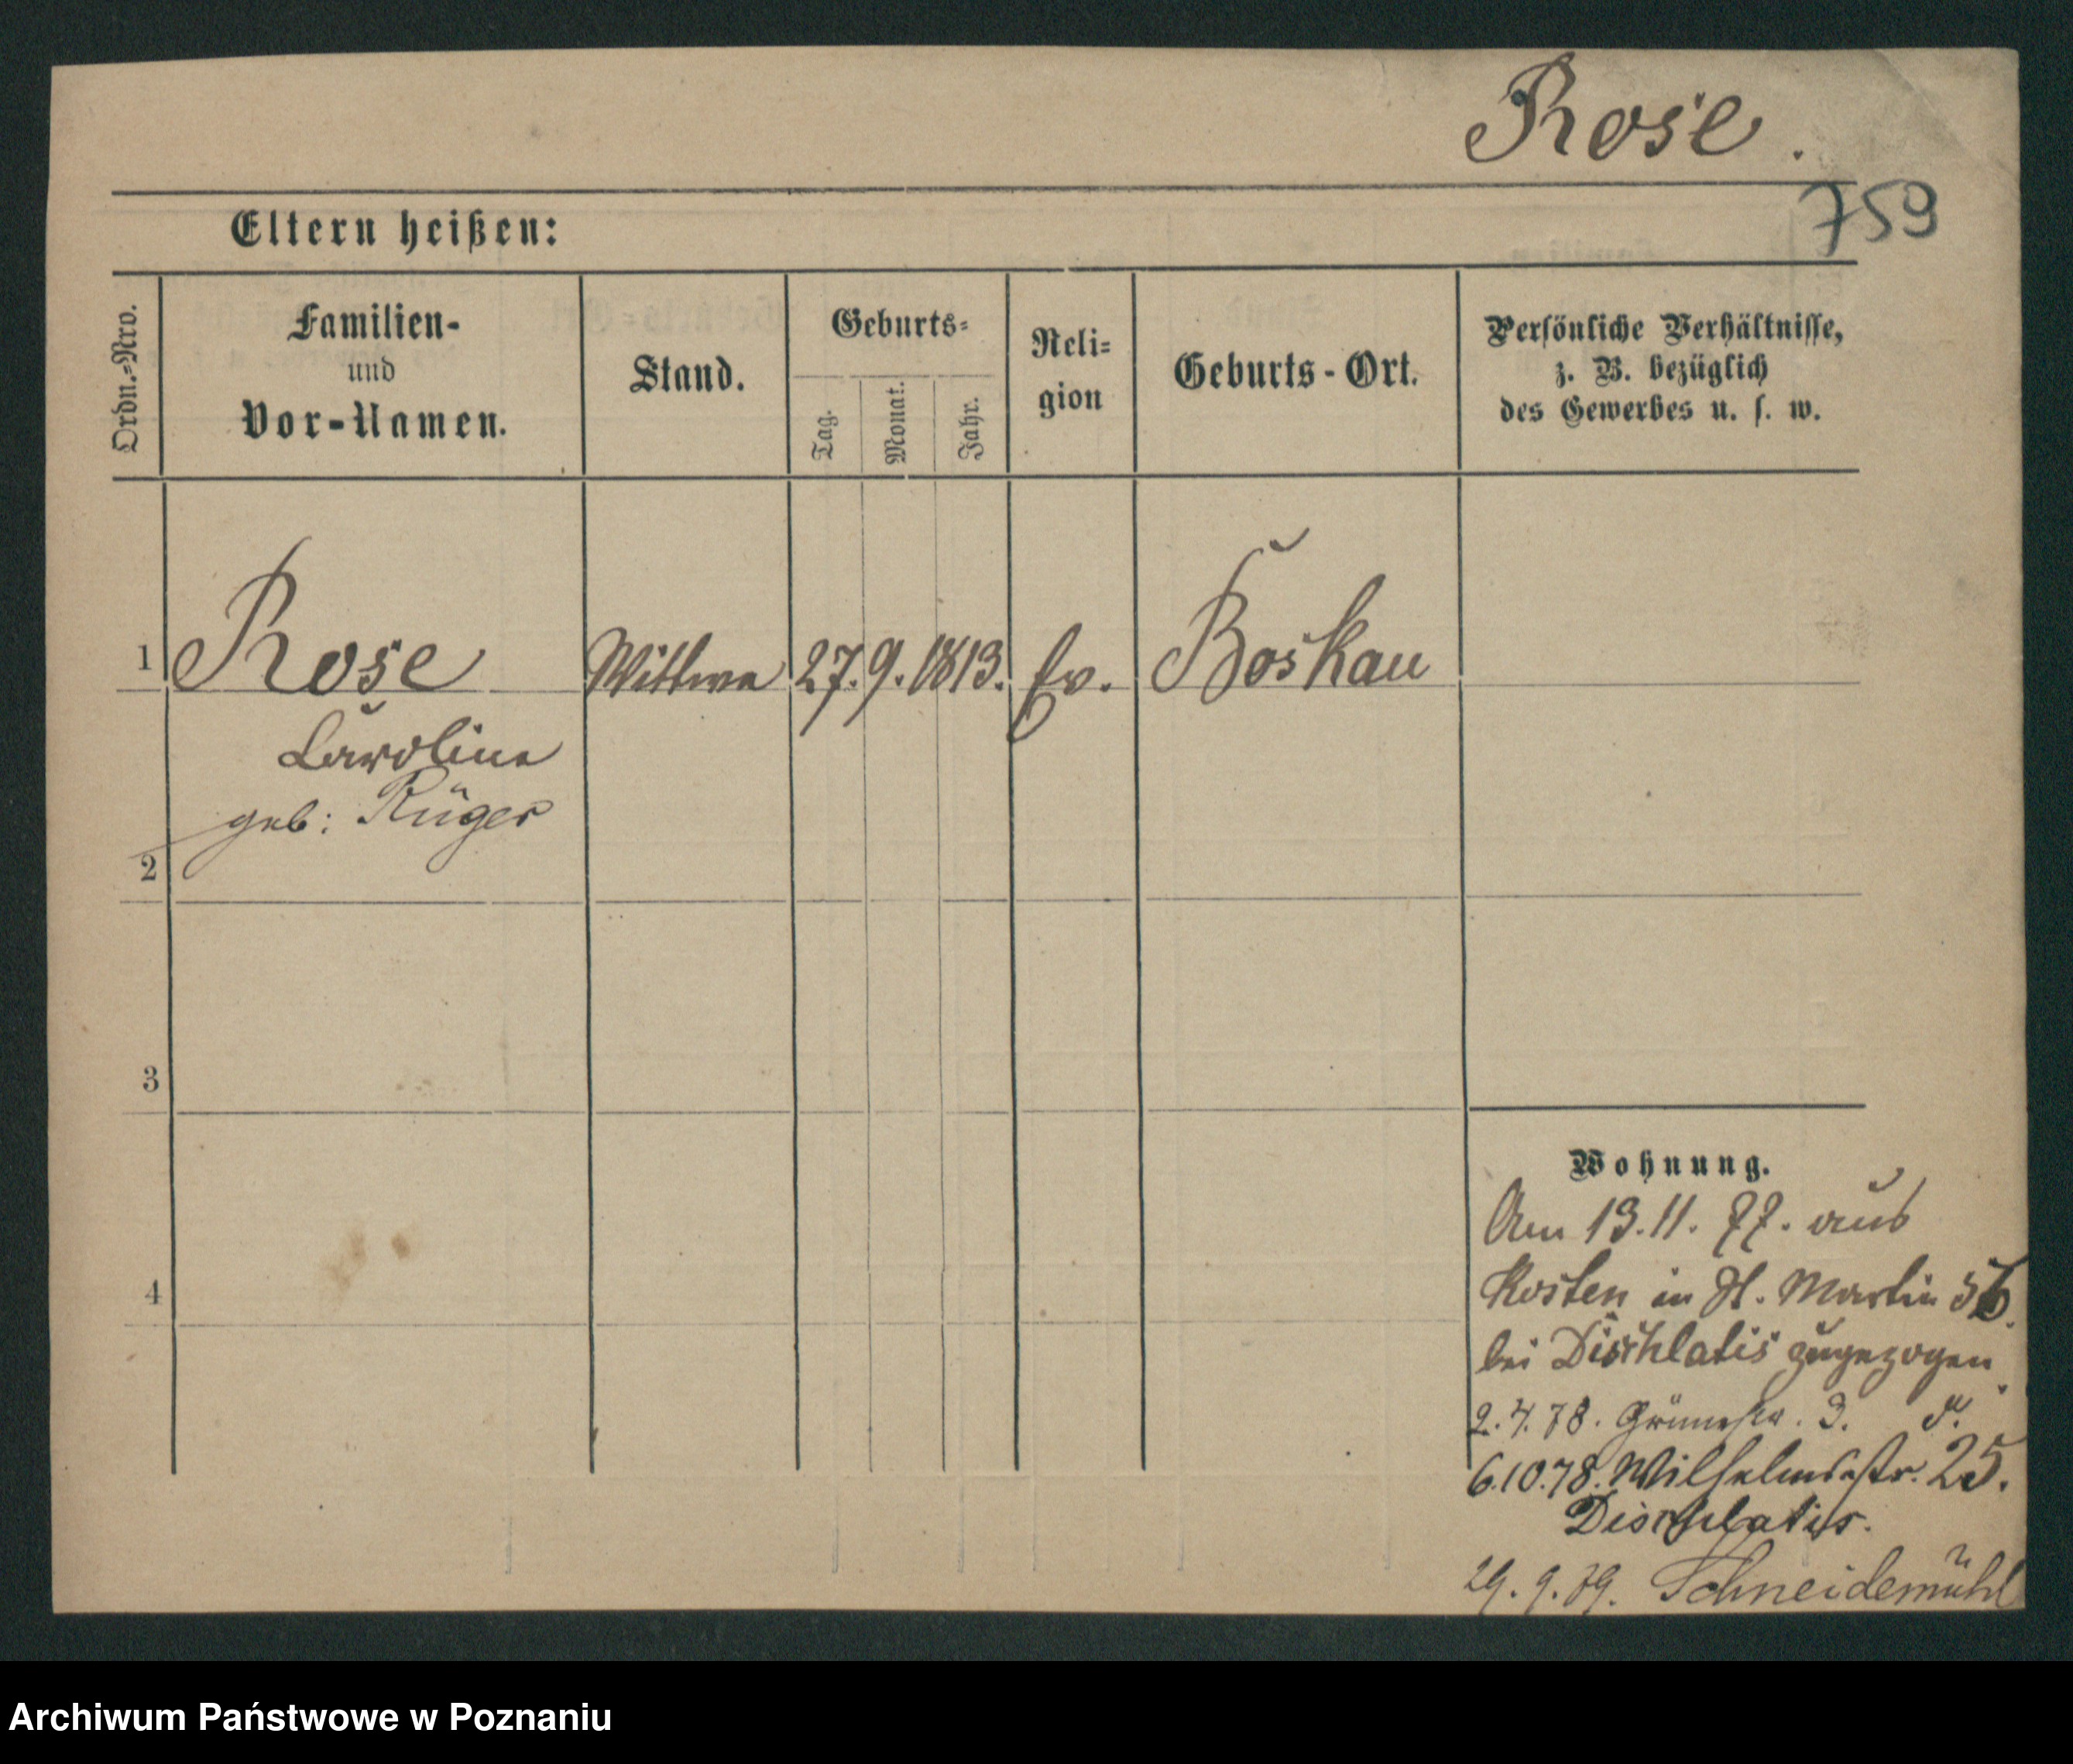 Rose.
759
Eltern heißen:
Ordn.=Nro.
Familien-
und
Vor-Namen.
Stand.
Geburts=
Tag.
Monat.
Jahr.
Reli=
gion
Geburts-Ort.
Persönliche Verhältnisse,
z. B. bezüglich
des Gewerbes u. s. w.
1 Rose Wittwe 27. 9. 1813. Ev. Boskau
Caroline
geb: Rüger
2
3
4
Wohnung.
Am 13.11.77. aus
Kosten in St. Martin
bei Dischlatis zugezogen
2.4.78. Grünestr. 3.
6.10.78. Wilhelmsstr. 25.
Dischlatis.
29.9.79. Schneidemühl
Archiwum Państwowe w Poznaniu